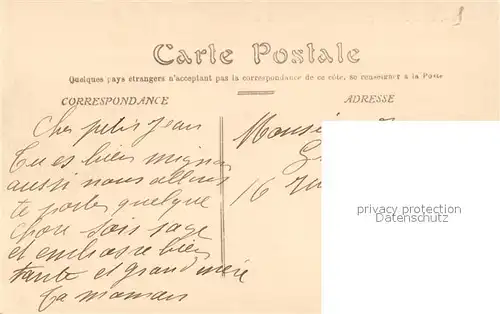 Carte Postale
Quelques pays étrangers n'acceptant pas la correspondance de ce côté, se renseigner à la Poste
CORRESPONDANCE
ADRESSE
Cher petit Jean
Tu es bien mignon
aussi nous allons
te porter quelque
chose sois sage
et embrasse bien
tante et grand mère
Ta maman
16
privacy protection
Datenschutz